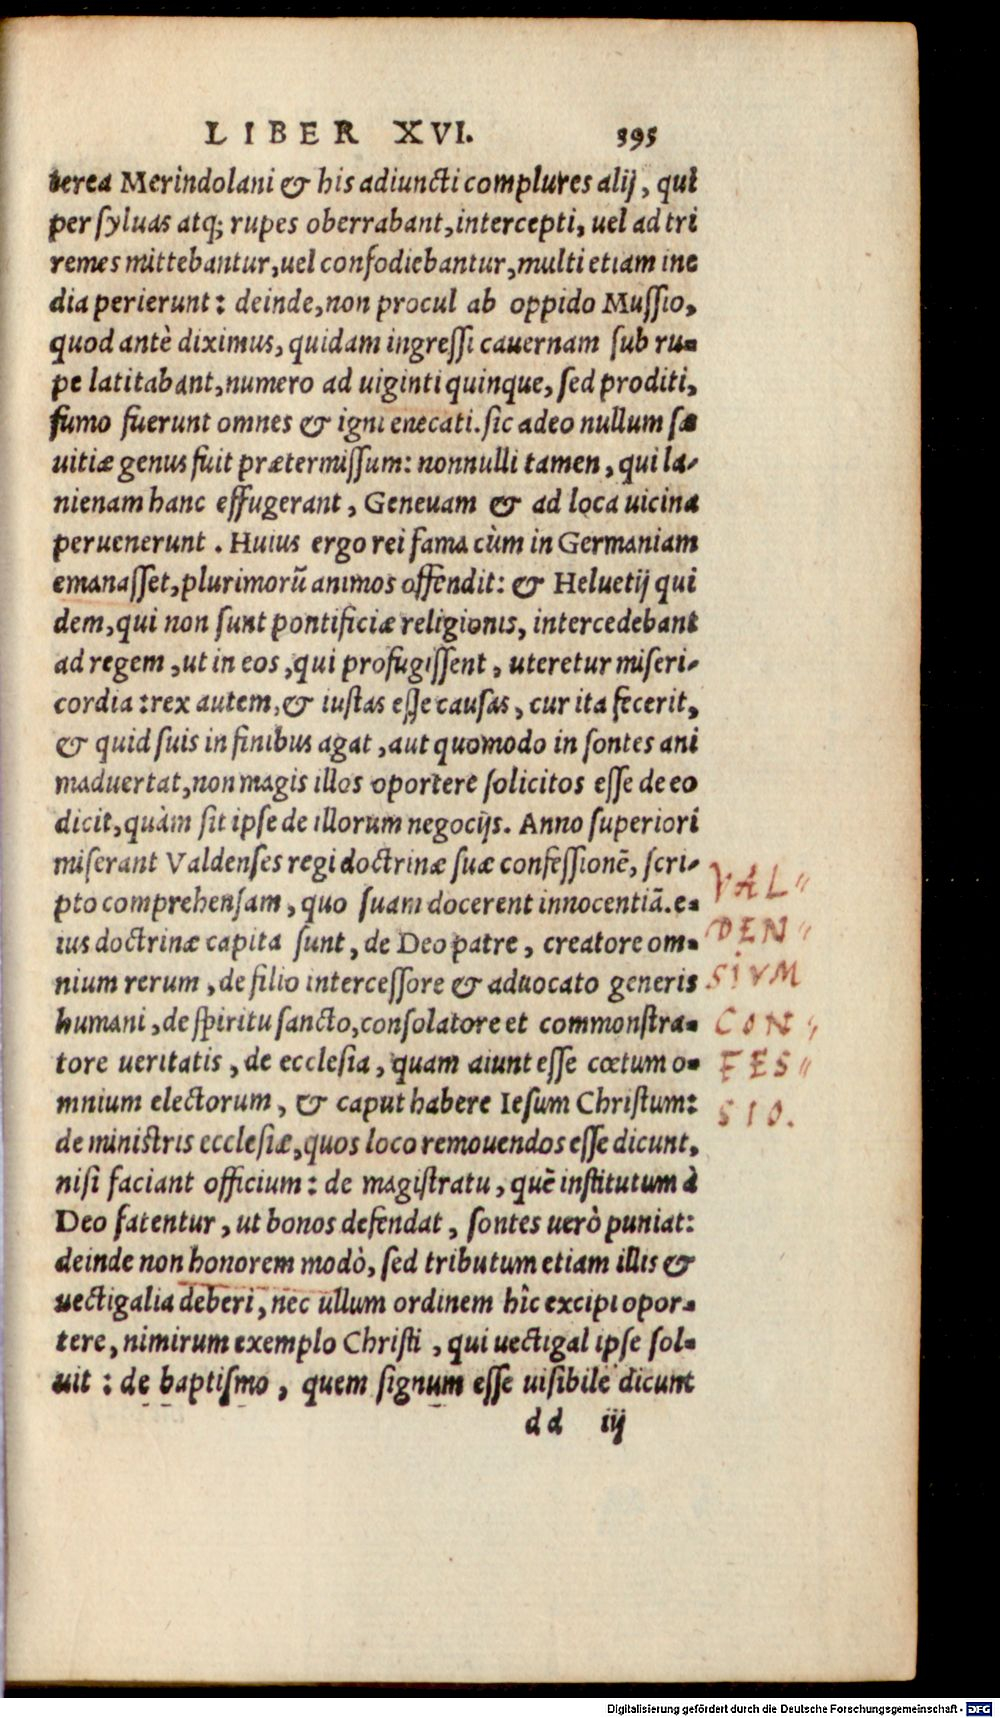 LIBER XVI. 395
terea Merindolani & his adiuncti complures alij, qui
per syluas atq; rupes oberrabant, intercepti, uel ad tri
remes mittebantur, uel confodiebantur, multi etiam ine
dia perierunt: deinde, non procul ab oppido Mussio,
quod antè diximus, quidam ingressi cauernam sub ru-
pe latitabant, numero ad uiginti quinque, sed proditi,
fumo fuerunt omnes & igni enecati. sic adeo nullum sæ
uitiæ genus fuit prætermissum: nonnulli tamen, qui la-
nienam hanc effugerant, Geneuam & ad loca uicina
peruenerunt. Huius ergo rei fama cùm in Germaniam
emanasset, plurimorũ animos offendit: & Heluetij qui
dem, qui non sunt pontificiæ religionis, intercedebant
ad regem, ut in eos, qui profugissent, uteretur miseri-
cordia: rex autem, & iustas esse causas, cur ita fecerit,
& quid suis in finibus agat, aut quomodo in sontes ani
maduertat, non magis illos oportere solicitos esse de eo
dicit, quàm sit ipse de illorum negocijs. Anno superiori
miserant Valdenses regi doctrinæ suæ confessionẽ, scri-
pto comprehensam, quo suam docerent innocentiã. e-
ius doctrinæ capita sunt, de Deo patre, creatore om-
nium rerum, de filio intercessore & aduocato generis
humani, de spiritu sancto, consolatore et commonstra-
tore ueritatis, de ecclesia, quam aiunt esse cœtum o-
mnium electorum, & caput habere Iesum Christum:
de ministris ecclesiæ, quos loco remouendos esse dicunt,
nisi faciant officium: de magistratu, quẽ institutum à
Deo fatentur, ut bonos defendat, sontes uerò puniat:
deinde non honorem modò, sed tributum etiam illis &
uectigalia deberi, nec ullum ordinem hîc excipi opor-
tere, nimirum exemplo Christi, qui uectigal ipse sol-
uit: de baptismo, quem signum esse uisibile dicunt
dd iij
VAL"
DEN"
SIVM
CON"
FES"
SIO.
Digitalisierung gefördert durch die Deutsche Forschungsgemeinschaft - DFG